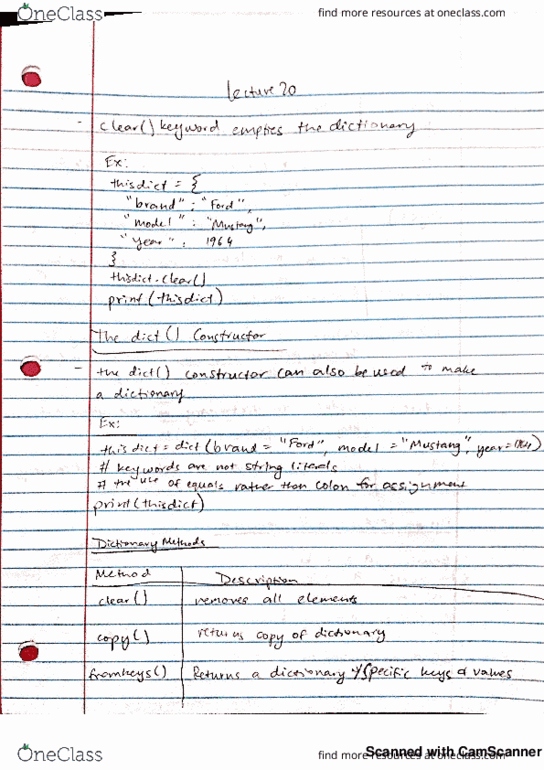 OneClass
find more resources at oneclass.com
Lecture 20
- clear() keyword empties the dictionary
Ex:
thisdict = {
"brand" : "Ford",
"model" : "Mustang",
"year" : 1964
}
thisdict.clear()
print(thisdict)
The dict() Constructor
- the dict() constructor can also be used to make
a dictionary
Ex:
thisdict = dict(brand = "Ford", model = "Mustang", year = 1964)
# keywords are not string literals
# the use of equals rather than colon for assignment
print(thisdict)
Dictionary Methods
Method Description
clear() removes all elements
copy() returns copy of dictionary
fromkeys() Returns a dictionary w/ specific keys & values
OneClass
find more resources at oneclass.com
Scanned with CamScanner